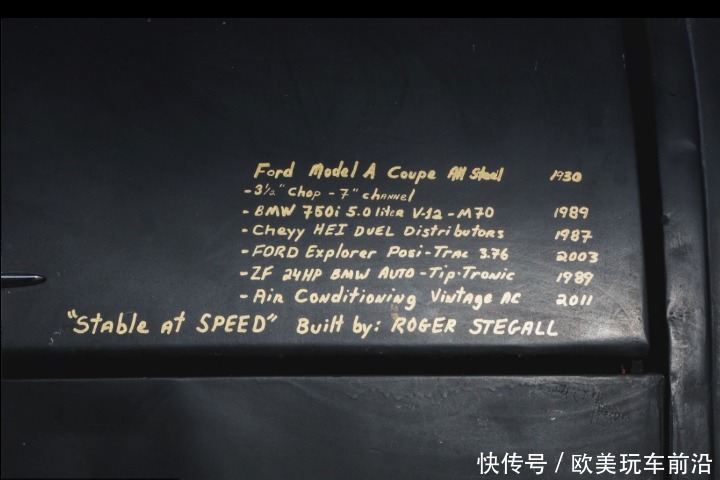 Ford Model A Coupe All Steel 1930
- 3 1/2" Chop - 7" channel
- BMW 750i 5.0 liter V-12 - M70 1989
- Chevy HEI DUEL Distributors 1987
- FORD Explorer Posi-Trac 3.76 2003
- ZF 24HP BMW AUTO - Tip-Tronic 1989
- Air Conditioning Vintage AC 2011
"Stable At SPEED" Built by: ROGER STEGALL
快传号 / 欧美玩车前沿